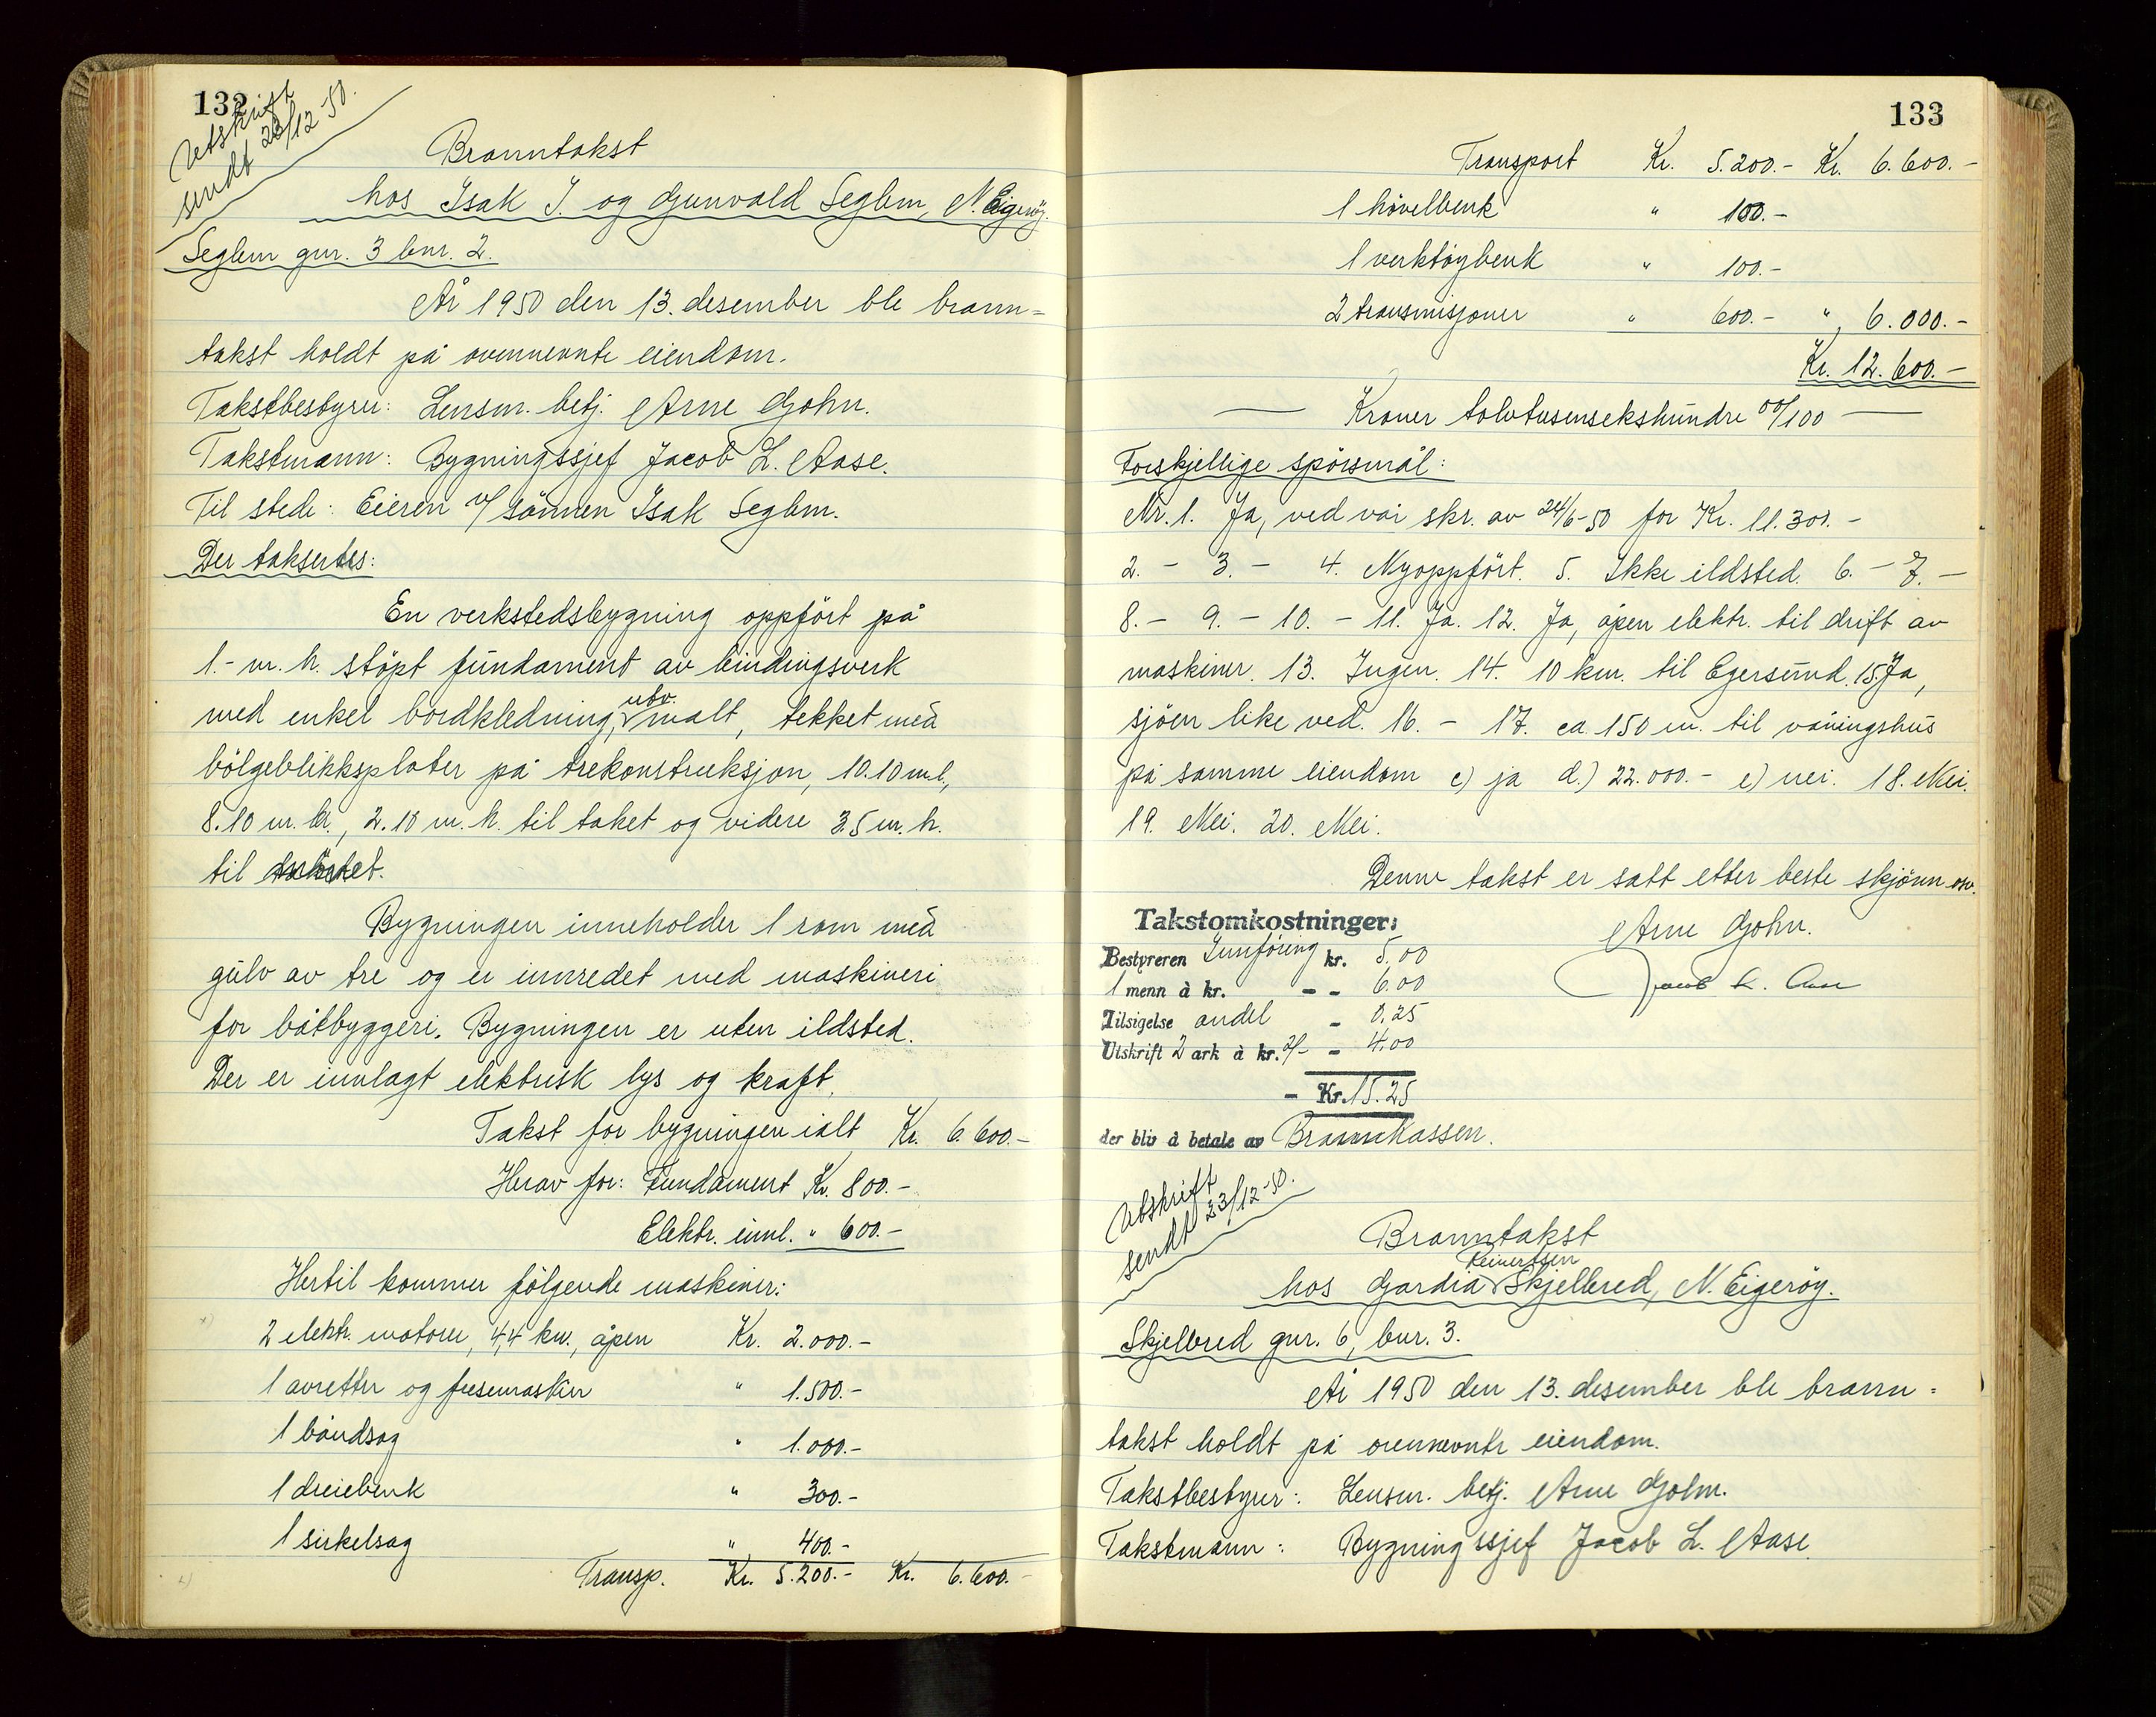 132
Utskrift
sendt 23/12-50.
Branntakst
hos Isak J. og Gunvald Seglem, N. Eigerøy.
Seglem gnr. 3 bnr. 2.
År 1950 den 13. desember ble brann=
takst holdt på ovennevnte eiendom.
Takstbestyrer: Lensm. betj. Arne Gjohn.
Takstmann: Bygningssjef Jacob L. Aase.
Til stede: Eieren v/ sönnen Isak Seglem.
Der taksertes:
En verkstedsbygning oppfört på
1.- m. h. stöpt fundament av bindingsverk
med enkel bordkledning, utv. malt, tekket med
bölgeblikksplater på trekonstruksjon, 10.10 m l,
8.10 m. br., 2.10 m. h. til taket og videre 3.5 m. h.
til
Bygningen inneholder 1 rom med
gulv av tre og er innredet med maskineri
for båtbyggeri. Bygningen er uten ildsted.
Der er innlagt elektrisk lys og kraft.
Takst for bygningen ialt Kr. 6.600.-
Herav for: Fundament Kr. 800.-
Elektr. innl. " 600.-
Hertil kommer fölgende maskiner:
2 elektr. motorer, 4,4 kw., åpen Kr. 2.000.-
1 avretter og fresemaskin " 1.500.-
1 båndsag " 1.000.-
1 dreiebenk " 300.-
1 sirkelsag " 400.-
Transp. Kr. 5.200.- Kr. 6.600.-
133
Transport Kr. 5.200.- Kr. 6.600.-
1 hövelbenk " 100.-
1 verktöybenk " 100.-
2 transmisjoner " 600.- " 6.000.-
Kr. 12.600.-
— Kroner tolvtusensekshundre 00/100 —
Forskjellige spörsmål:
Nr. 1. Ja, ved vår skr. av 24/6-50 for Kr. 11.300.-
2. - 3. - 4. Nyoppfört. 5. Ikke ildsted. 6. - 7. -
8. - 9. - 10. - 11. Ja. 12. Ja, åpen elektr. til drift av
maskiner. 13. Ingen. 14. 10 km. til Egersund. 15. Ja,
sjöen like ved. 16. - 17. ca. 150 m. til våningshus
på samme eiendom c) ja d.) 22.000.- e) nei. 18. Nei.
19. Nei. 20. Nei.
Denne takst er satt etter beste skjönn osv.
Arne Gjohn.
Jacob L. Aase
Takstomkostninger:
Bestyreren Innföring kr. 5.00
1 menn à kr. - - 6.00
Tilsigelse andel - 0.25
Utskrift 2 ark à kr. 2/- - 4.00
- Kr. 15.25
der bliv å betale av Brannkassen.
Utskrift
sendt 23/12-50.
Branntakst
hos Gardia Reinertsen Skjelbred, N. Eigeröy.
Skjelbred gnr. 6, bnr. 3.
År 1950 den 13. desember ble brann=
takst holdt på ovennevnte eiendom.
Takstbestyrer: Lensm. betj. Arne Gjohn.
Takstmann: Bygningssjef Jacob L. Aase